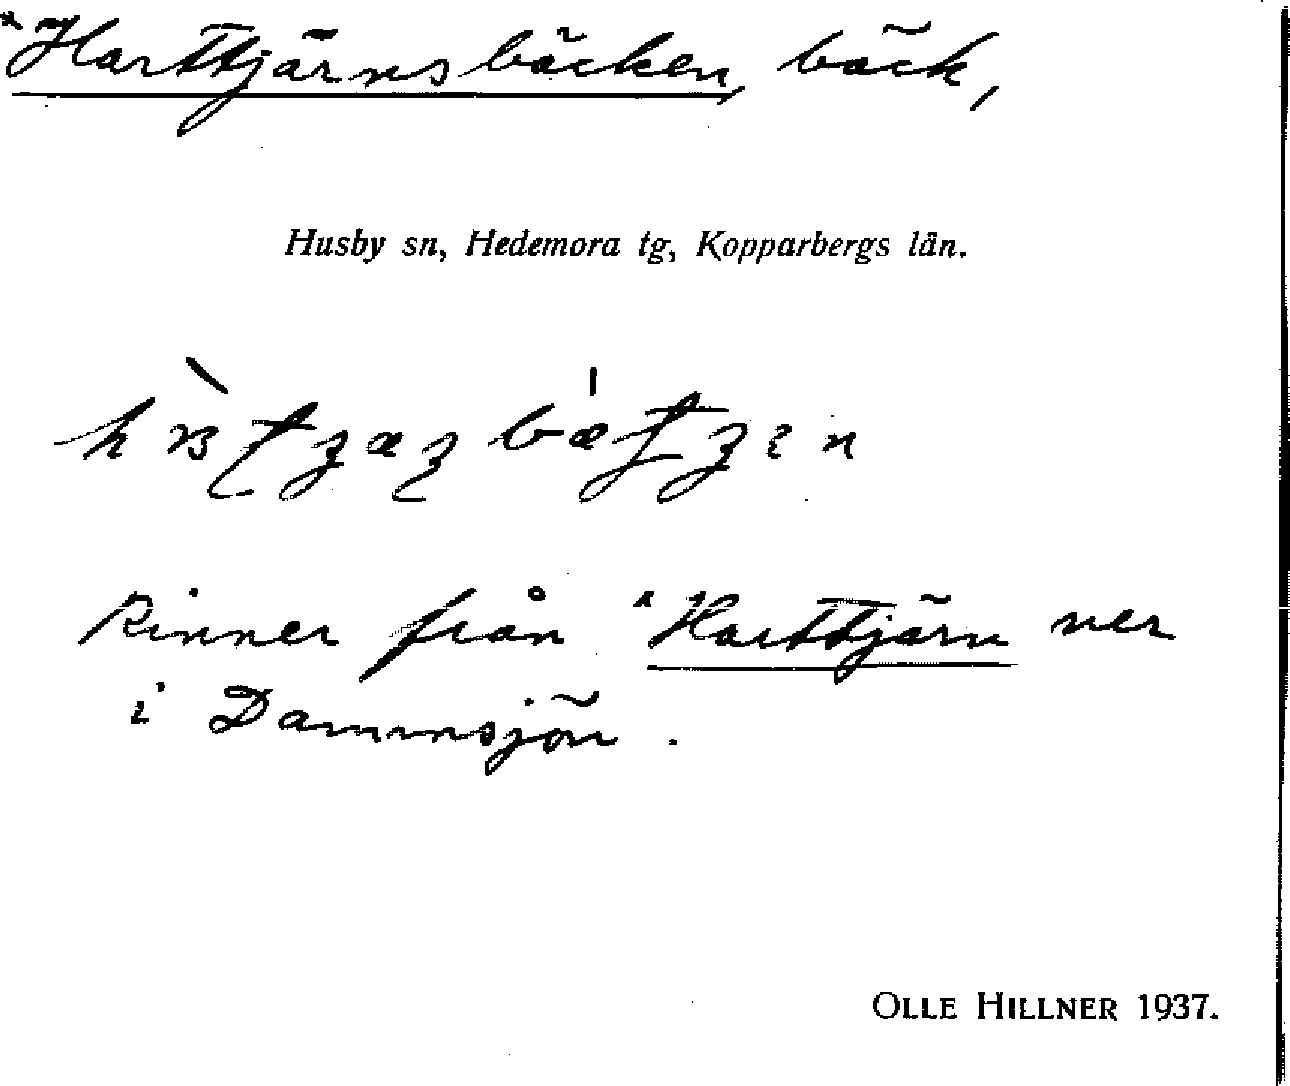 *Harttjärnsbäcken, bäck,
Husby sn, Hedemora tg, Kopparbergs län.
Rinner från *Harttjärn ner
i Dammsjön.
OLLE HILLNER 1937.